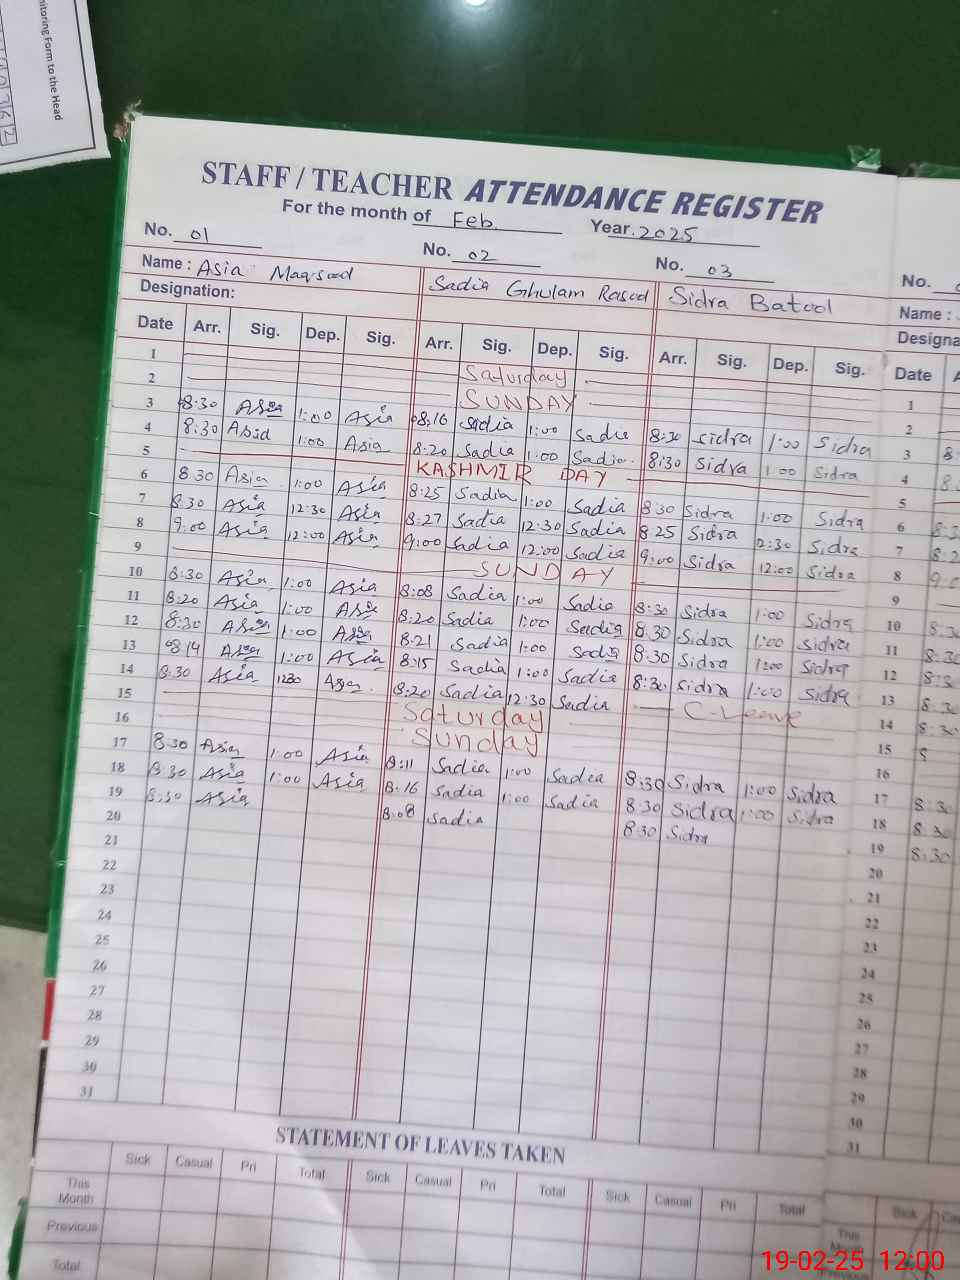 nitoring Form to the Head
STAFF / TEACHER ATTENDANCE REGISTER
For the month of Feb. Year. 2025
No. 01 No. 02 No. 03 No.
Name : Asia Maqsood Sadia Ghulam Rasool Sidra Batool Name :
Designation: Designa
Date Arr. Sig. Dep. Sig. Arr. Sig. Dep. Sig. Arr. Sig. Dep. Sig. Date
1 Saturday 1
2 SUNDAY 2
3 8:30 Asia 1:00 Asia 8:16 Sadia 1:00 Sadia 8:30 Sidra 1:00 Sidra 3
4 8:30 Asia 1:00 Asia 8:20 Sadia 1:00 Sadia 8:30 Sidra 1:00 Sidra 4
5 KASHMIR DAY 5
6 8:30 Asia 1:00 Asia 8:25 Sadia 1:00 Sadia 8:30 Sidra 1:00 Sidra 6
7 8:30 Asia 12:30 Asia 8:27 Sadia 12:30 Sadia 8:25 Sidra 12:30 Sidra 7
8 9:00 Asia 12:00 Asia 9:00 Sadia 12:00 Sadia 9:00 Sidra 12:00 Sidra 8
9 SUNDAY 9
10 8:30 Asia 1:00 Asia 8:08 Sadia 1:00 Sadia 8:30 Sidra 1:00 Sidra 10
11 8:20 Asia 1:00 Asia 8:20 Sadia 1:00 Sadia 8:30 Sidra 1:00 Sidra 11
12 8:30 Asia 1:00 Asia 8:21 Sadia 1:00 Sadia 8:30 Sidra 1:00 Sidra 12
13 8:14 Asia 1:00 Asia 8:15 Sadia 1:00 Sadia 8:30 Sidra 1:00 Sidra 13
14 8:30 Asia 1230 Asia 8:20 Sadia 12:30 Sadia C-Leave 14
15 Saturday 15
16 Sunday 16
17 8:30 Asia 1:00 Asia 8:11 Sadia 1:00 Sadia 8:30 Sidra 1:00 Sidra 17
18 8:30 Asia 1:00 Asia 8:16 Sadia 1:00 Sadia 8:30 Sidra 1:00 Sidra 18
19 8:30 Asia 8:08 Sadia 8:30 Sidra 19 8:30
20 20
21 21
22 22
23 23
24 24
25 25
26 26
27 27
28 28
29 29
30 30
31 31
STATEMENT OF LEAVES TAKEN
Sick Casual Pri Total Sick Casual Pri Total Sick Casual Pri Total Sick
This Month This
Previous
Total
19-02-25 12:00